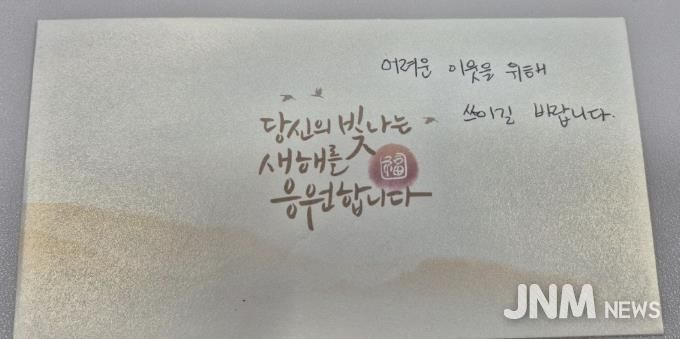 어려운 이웃을 위해
쓰이길 바랍니다.
당신의 빛나는
새해를
福
응원합니다
JNM NEWS